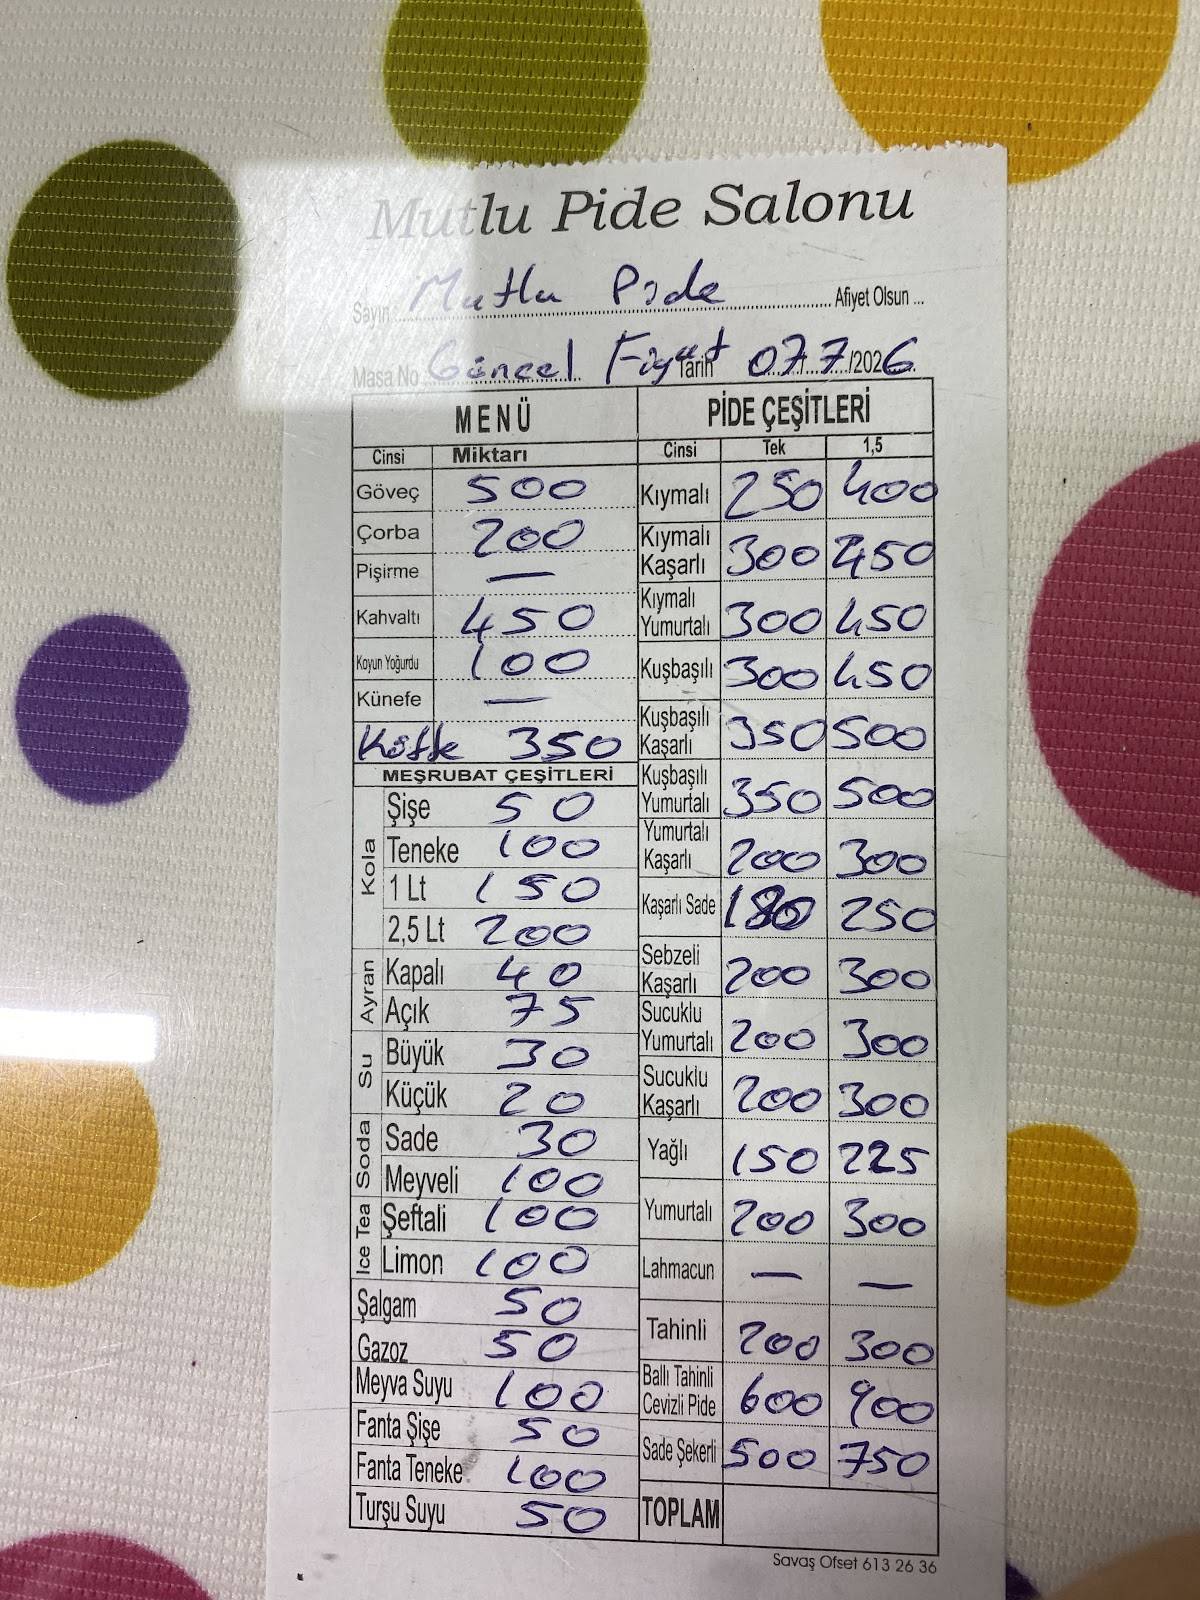 Mutlu Pide Salonu
Sayın : Mutlu Pide Afiyet Olsun ...
Masa No Güncel Fiyat Tarih 07.7./2026
MENÜ
Cinsi Miktarı
Göveç 500
Çorba 200
Pişirme —
Kahvaltı 450
Koyun Yoğurdu 100
Künefe —
Köfte 350
MEŞRUBAT ÇEŞİTLERİ
Kola
Şişe 50
Teneke 100
1 Lt 150
2,5 Lt 200
Ayran
Kapalı 40
Açık 75
Su
Büyük 30
Küçük 20
Soda
Sade 30
Meyveli 100
Ice Tea
Şeftali 100
Limon 100
Şalgam 50
Gazoz 50
Meyva Suyu 100
Fanta Şişe 50
Fanta Teneke 100
Turşu Suyu 50
PİDE ÇEŞİTLERİ
Cinsi Tek 1,5
Kıymalı 250 400
Kıymalı
Kaşarlı 300 450
Kıymalı
Yumurtalı 300 450
Kuşbaşılı 300 450
Kuşbaşılı
Kaşarlı 350 500
Kuşbaşılı
Yumurtalı 350 500
Yumurtalı
Kaşarlı 200 300
Kaşarlı Sade 180 250
Sebzeli
Kaşarlı 200 300
Sucuklu
Yumurtalı 200 300
Sucuklu
Kaşarlı 200 300
Yağlı 150 225
Yumurtalı 200 300
Lahmacun — —
Tahinli 200 300
Ballı Tahinli
Cevizli Pide 600 900
Sade Şekerli 500 750
TOPLAM
Savaş Ofset 613 26 36